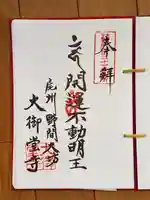 奉拝
開運不動明王
尾州 野間大坊
大御堂寺